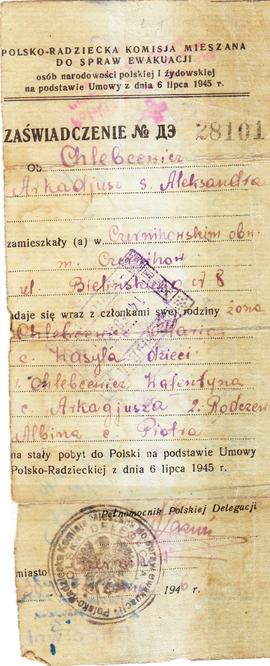 POLSKO-RADZIECKA KOMISJA MIESZANA
DO SPRAW EWAKUACJI
osób narodowości polskiej i żydowskiej
na podstawie Umowy z dnia 6 lipca 1945 r.
ZAŚWIADCZENIE № ДЭ 28101
Ob. Chlebcewicz
Arkadjusz s. Aleksandra
zamieszkały (a) w Czernihowskim obw.
m. Czernihow
ul. 8
udaje się wraz z członkami swej rodziny żona
Chlebcewicz
c. Wasyla dzieci
1. Chlebcewicz Walentyna
c. Arkadjusza 2.
Albina c. Piotra
na stały pobyt do Polski na podstawie Umowy
Polsko-Radzieckiej z dnia 6 lipca 1945 r.
Pełnomocnik Polskiej Delegacji
miasto 1946